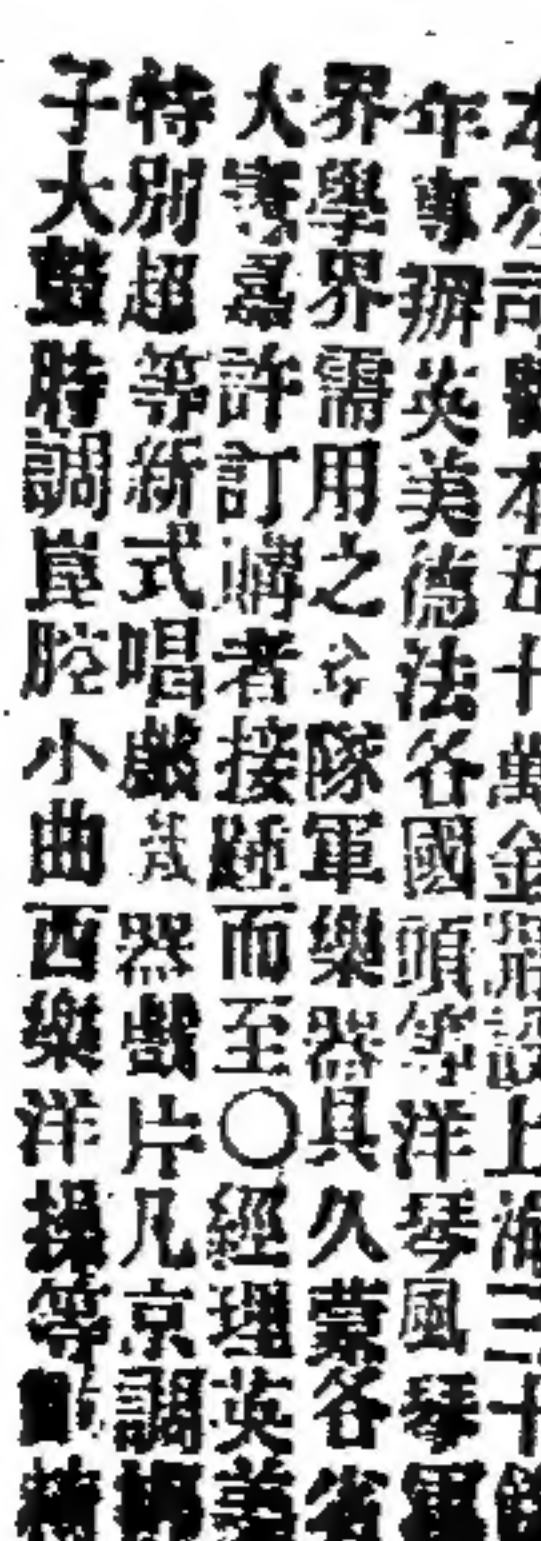 本公司資本五十萬金開設上海三十餘
年專辦英美德法各國頭等洋琴風琴軍
界學界需用之各隊軍樂器具久蒙各省
大賓嘉許訂購者接踵而至〇經理英美
特別超等新式唱戲機器戲片凡京調梆
子大鼓時調崑腔小曲西樂洋操等齣精